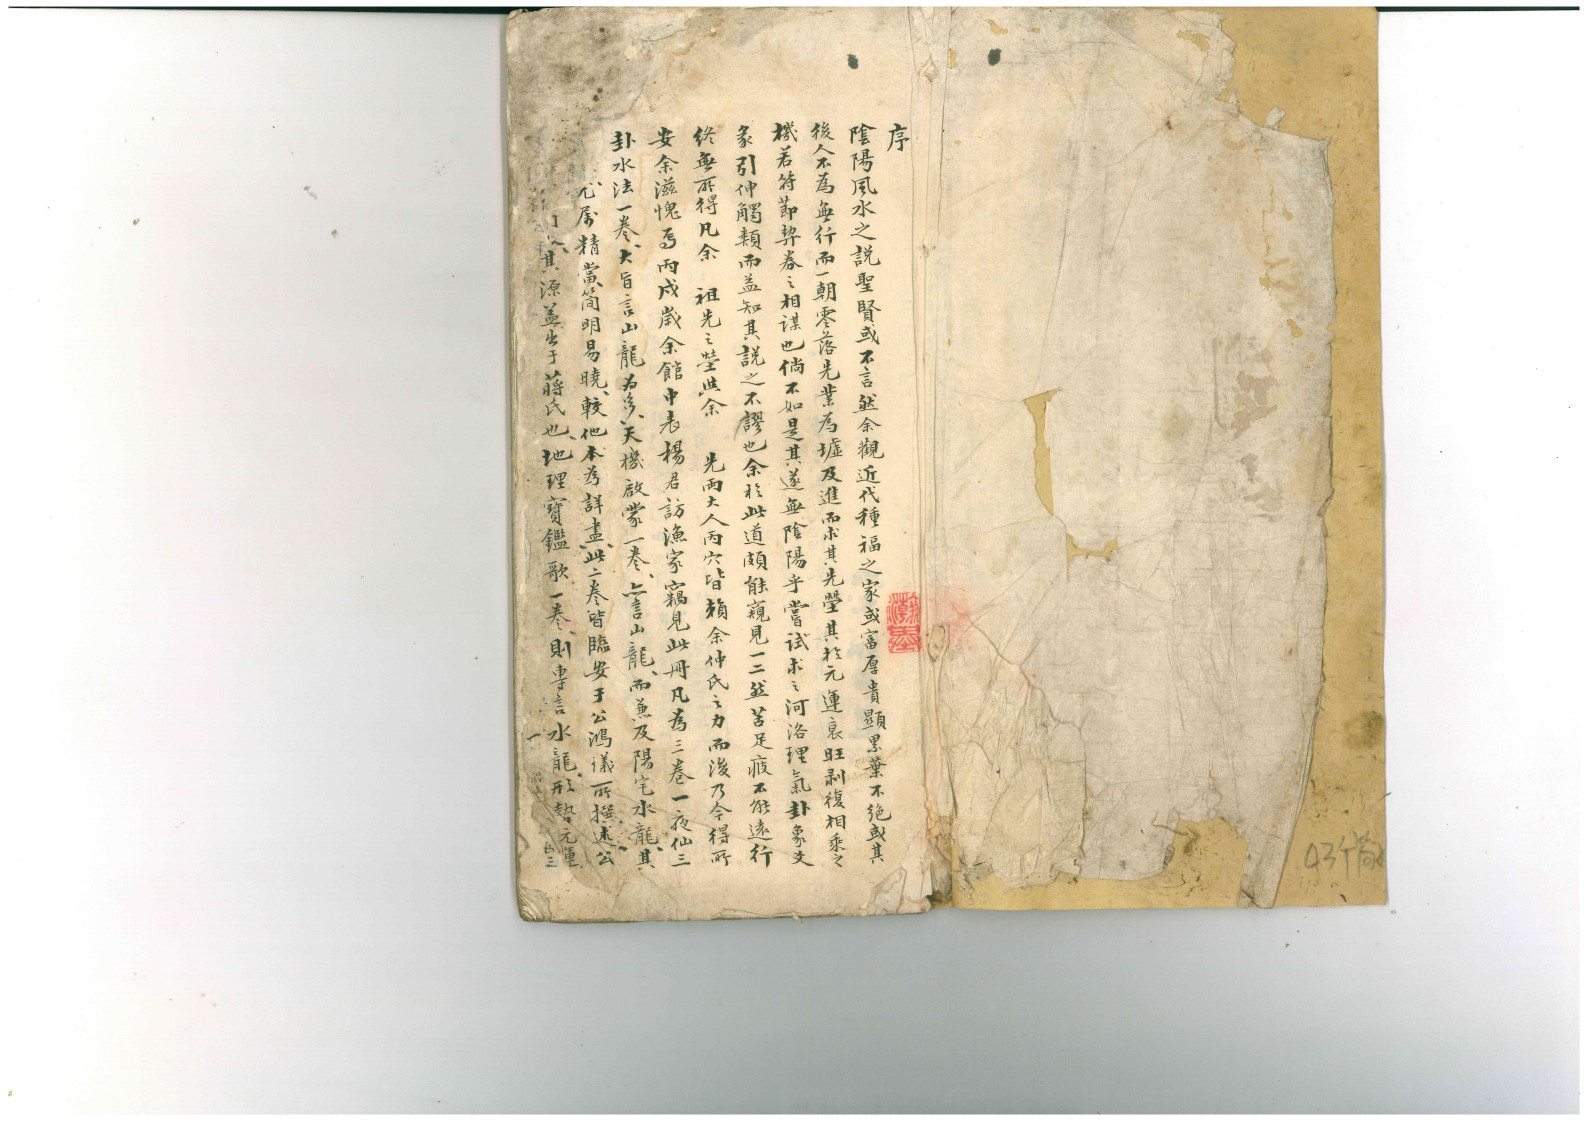 序
陰陽風水之説聖賢或不言然余觀近代種福之家或富厚貴顯累葉不絶或其
後人不為無行而一朝零落先業為墟及進而求其先塋其於元運衰旺剥復相乘之
機若符節契券之相謀也倘不如是其遂無陰陽乎嘗試求之河洛理氣卦象爻
彖引伸觸類而益知其説之不謬也余於此道頗能窺見一二然苦足疲不能遠行
終無所得凡余 祖先之塋与余 先両大人丙穴皆賴余仲氏之力而後乃今得所
安余滋愧焉丙戌嵗余館中表楊君訪漁家竊見此冊凡為三巻一夜仙三
卦水法一巻、大旨言山龍為多、天機啟蒙一巻、亦言山龍、而兼及陽宅水龍、其
尤属精當、簡明易曉、較他本為詳盡、此二巻皆臨安于公鴻儀所撰述、公
其源盖出于蒋氏也、地理寳鑑歌一巻、則専言水龍、形勢元運
一
43个筒